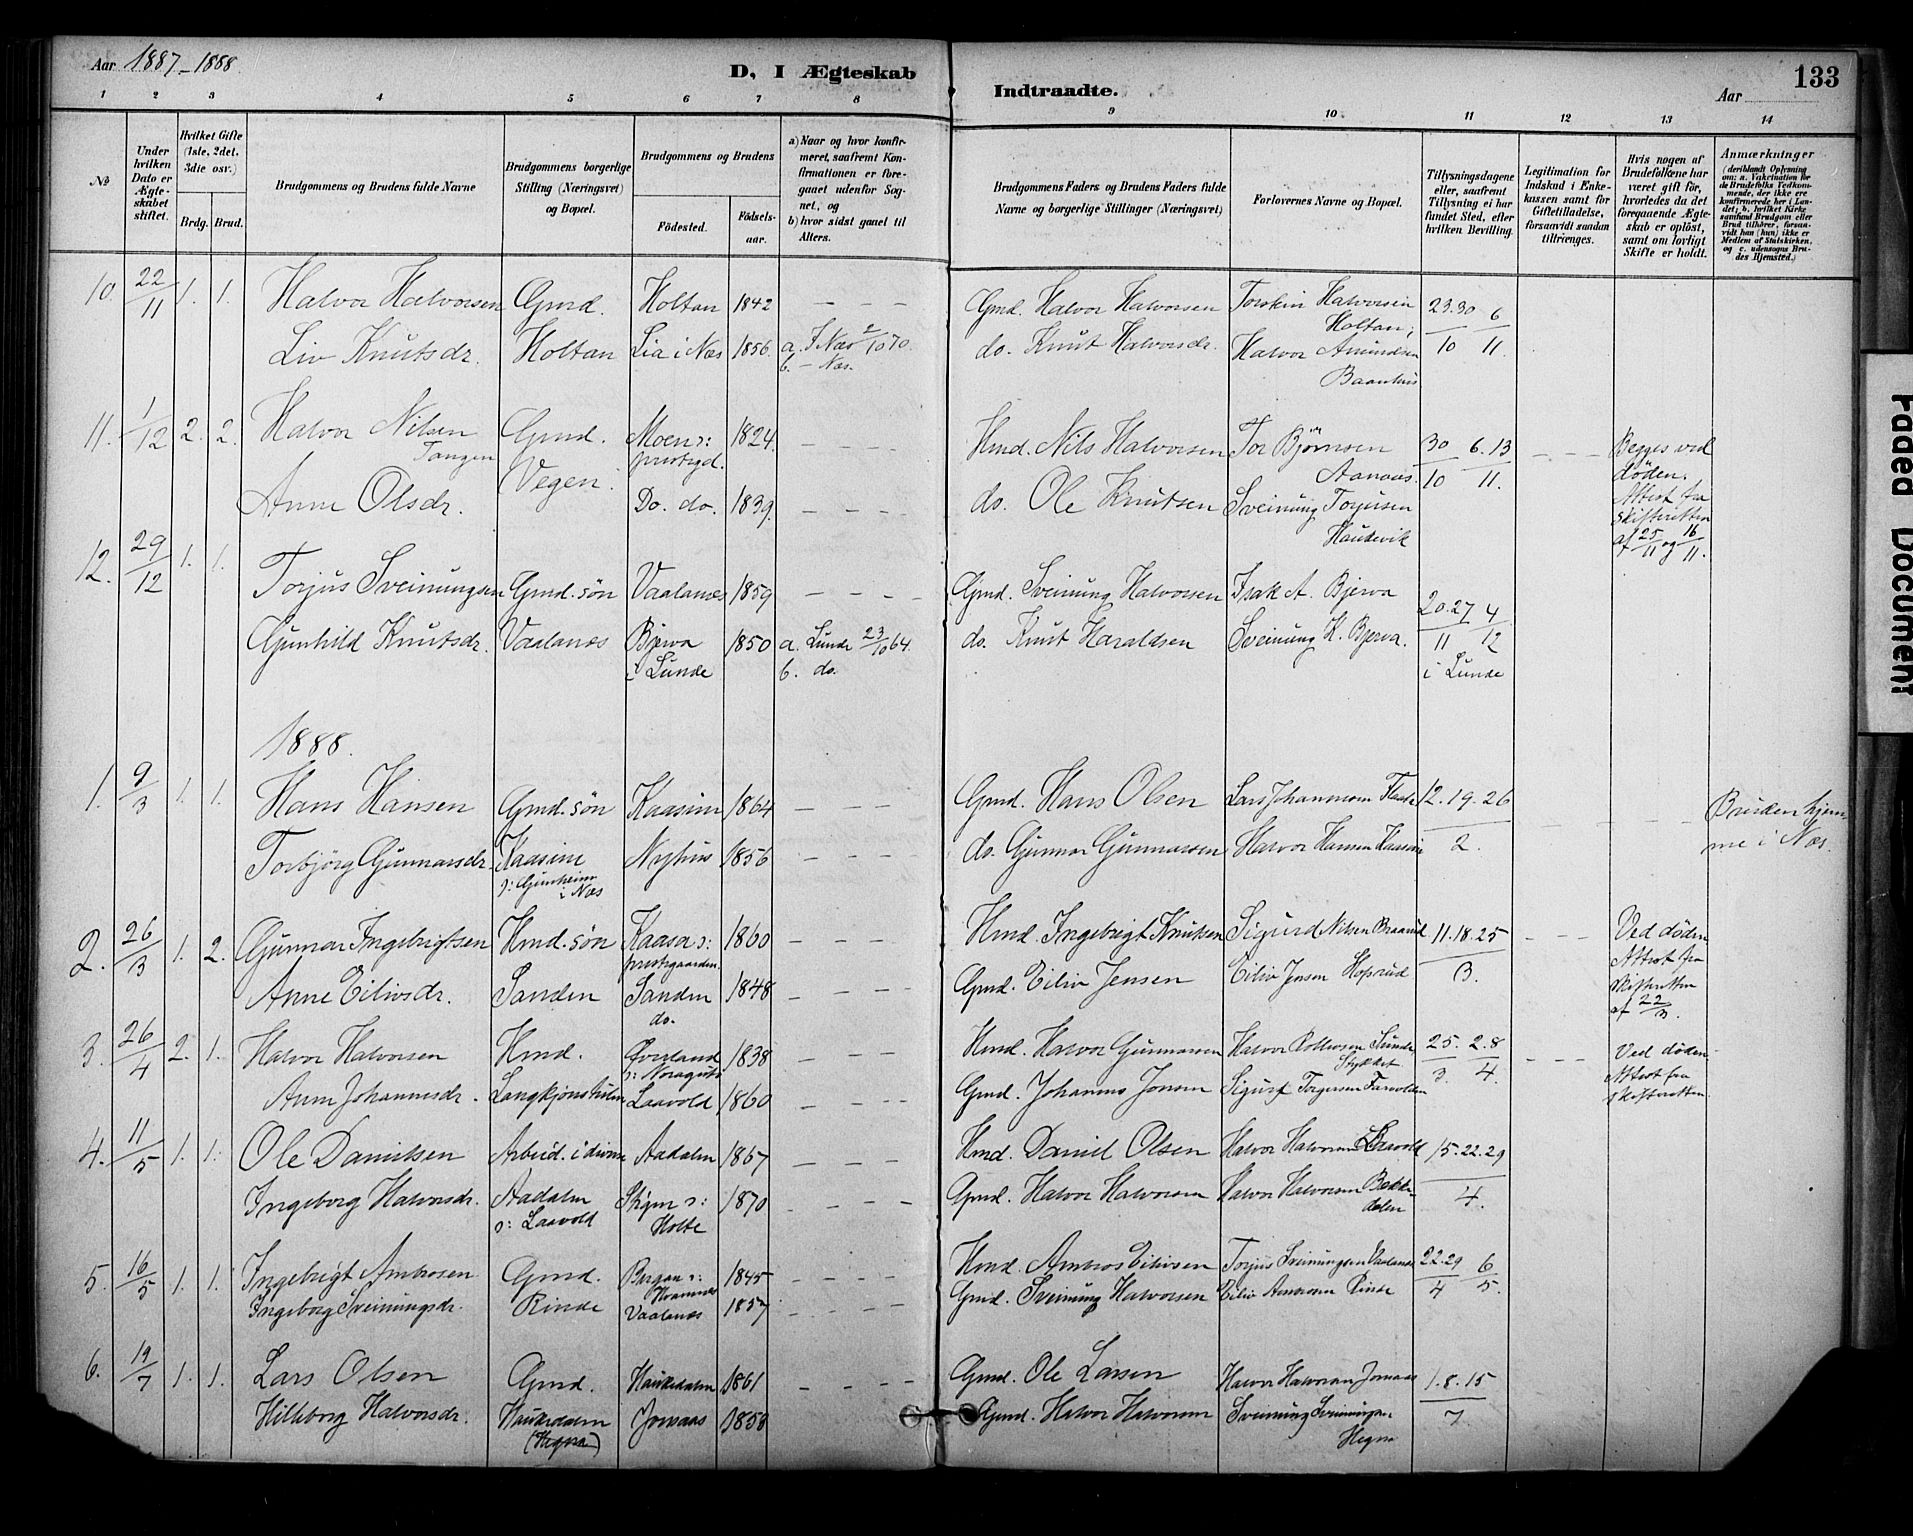 Aar 1887-1888.
D, I Ægteskab
Indtraadte.
Aar
133
1 2 3 4 5 6 7 8 9 10 11 12 13 14
№
Under hvilken Dato er Ægteskabet stiftet.
Hvilket Gifte (1ste, 2det, 3die osv.)
Brdg. Brud.
Brudgommens og Brudens fulde Navne
Brudgommens borgerlige Stilling (Næringsvei) og Bopæl.
Brudgommens og Brudens
Fødested.
Fødselsaar.
a) Naar og hvor konfirmeret, saafremt Konfirmationen er foregaaet udenfor Sognet, og
b) hvor sidst gaaet til Alters.
Brudgommens Faders og Brudens Faders fulde Navne og borgerlige Stillinger (Næringsvei)
Forlovernes Navne og Bopæl.
Tillysningsdagene eller, saafremt Tillysning ei har fundet Sted, efter hvilken Bevilling.
Legitimation for Indskud i Enkekassen samt for Giftetilladelse, forsaavidt saadan tiltrænges.
Hvis nogen af Brudefolkene har været gift før, hvorledes da det foregaaende Ægteskab er opløst, samt om lovligt Skifte er holdt.
Anmærkninger
10. 22/11 1. 1. Halvor Halvorsen Gmd. Holtan 1842 – – – Gmd. Halvor Halvorsen Torskin Halvorsen Holtan; 23.30/10 6/11
Liv Knutsdr. Holtan Lia i Næs 1856. a. I Næs 2/10 70. b. – Næs. do. Knut Halvorsdr. Halvor Amundsen Baanhus
11. 1/12 2. 2. Halvor Nilsen Tangen Gmd. Moen ɔ: prestegd. 1824. – – – Hmd. Nils Halvorsen Tor Bjørnsen Aanaas. 30/10 6.13/11. – – – Begges ved døden. Attest fra skifteretten af 25/11 og 16/11.
Anne Olsdr. Vegen. Do. do. 1839. – – – do. Ole Knutsen Sveinung Torjusen Haudevik
12. 29/12 1. 1. Torjus Sveinungsen Gmd. søn Vaalanes 1859 – – – Gmd. Sveinung Halvorsen Isak A. Bjerva 20.27/11 4/12
Gunhild Knutsdr. Vaalanes Bjerva i Lunde 1850 a. Lunde 23/10 64. b. do. do. Knut Haraldsen Sveinung K. Bjerva. i Lunde
1888.
1. 9/3 1. 1. Hans Hansen Gmd. søn Kaasine 1864 – – – Gmd. Hans Olsen Lars Johannesen 12.19.26/2. – – – Bruden hjemme i Næs.
Torbjörg Gunnarsdr. Kaasine ɔ: Gunheim i Næs Nyhus 1856 – – – do. Gunnar Gunnarsen Halvor Hansen Kaasine
2. 26/3 1. 2. Gunnar Ingebrigtsen Hmd. søn Kaasa ɔ: prestegaarden. 1860 – – – Hmd. Ingebrigt Knutsen Sigurd Nilsen 11.18.25/3. – – – Ved døden Attest fra skifteretten af 22/3.
Anne Eilivsdr. Sanden Sanden do. 1848 – – – Gmd. Eiliv Jensen Eiliv Jensen Hoprud
3. 26/4 2. 1. Halvor Halvorsen Hmd. 1838 Hmd. Halvor Gunnarsen Halvor 25./3. 2.8/4. – – – Ved døden Attest fra skifteretten.
Anne Johannesdr. Langkjønsholm Laavold 1860 – – – Gmd. Johannes Jonsen Sigurd Torgersen Farvolden
4. 11/5 1. 1. Ole Danielsen Arbeid. i diverse Aadalen 1867 – – – Hmd. Daniel Olsen Halvor Halvorsen Laavold 15.22.29/4.
Ingeborg Halvorsdr. Aadalen ɔ: Laavold Stigen ɔ: Holte 1870 – – – Gmd. Halvor Halvorsen Halvor Halvorsen Bakkedalen
5. 16/5 1. 1. Ingebrigt Ambrosen Gmd. Bergan ɔ: 1845 – – – Hmd. Ambros Eilivsen Torjus Sveinungsen Vaalanes 22.29/4 6/5.
Ingeborg Sveinungsdr. Rinde Vaalanes 1857 – – – Gmd. Sveinung Halvorsen Eiliv Ambrosen Rinde
6. 19/7 1. 1. Lars Olsen Gmd. Haukedalen 1861 – – – Gmd. Ole Larsen Halvor Halvorsen Jonsaas 1.8.15/7
Hilleborg Halvorsdr. Haukedalen (Hegna) Jonsaas 1858 Gmd. Halvor Halvorsen Sveinung Sveinungsen Hegna
Faded Document